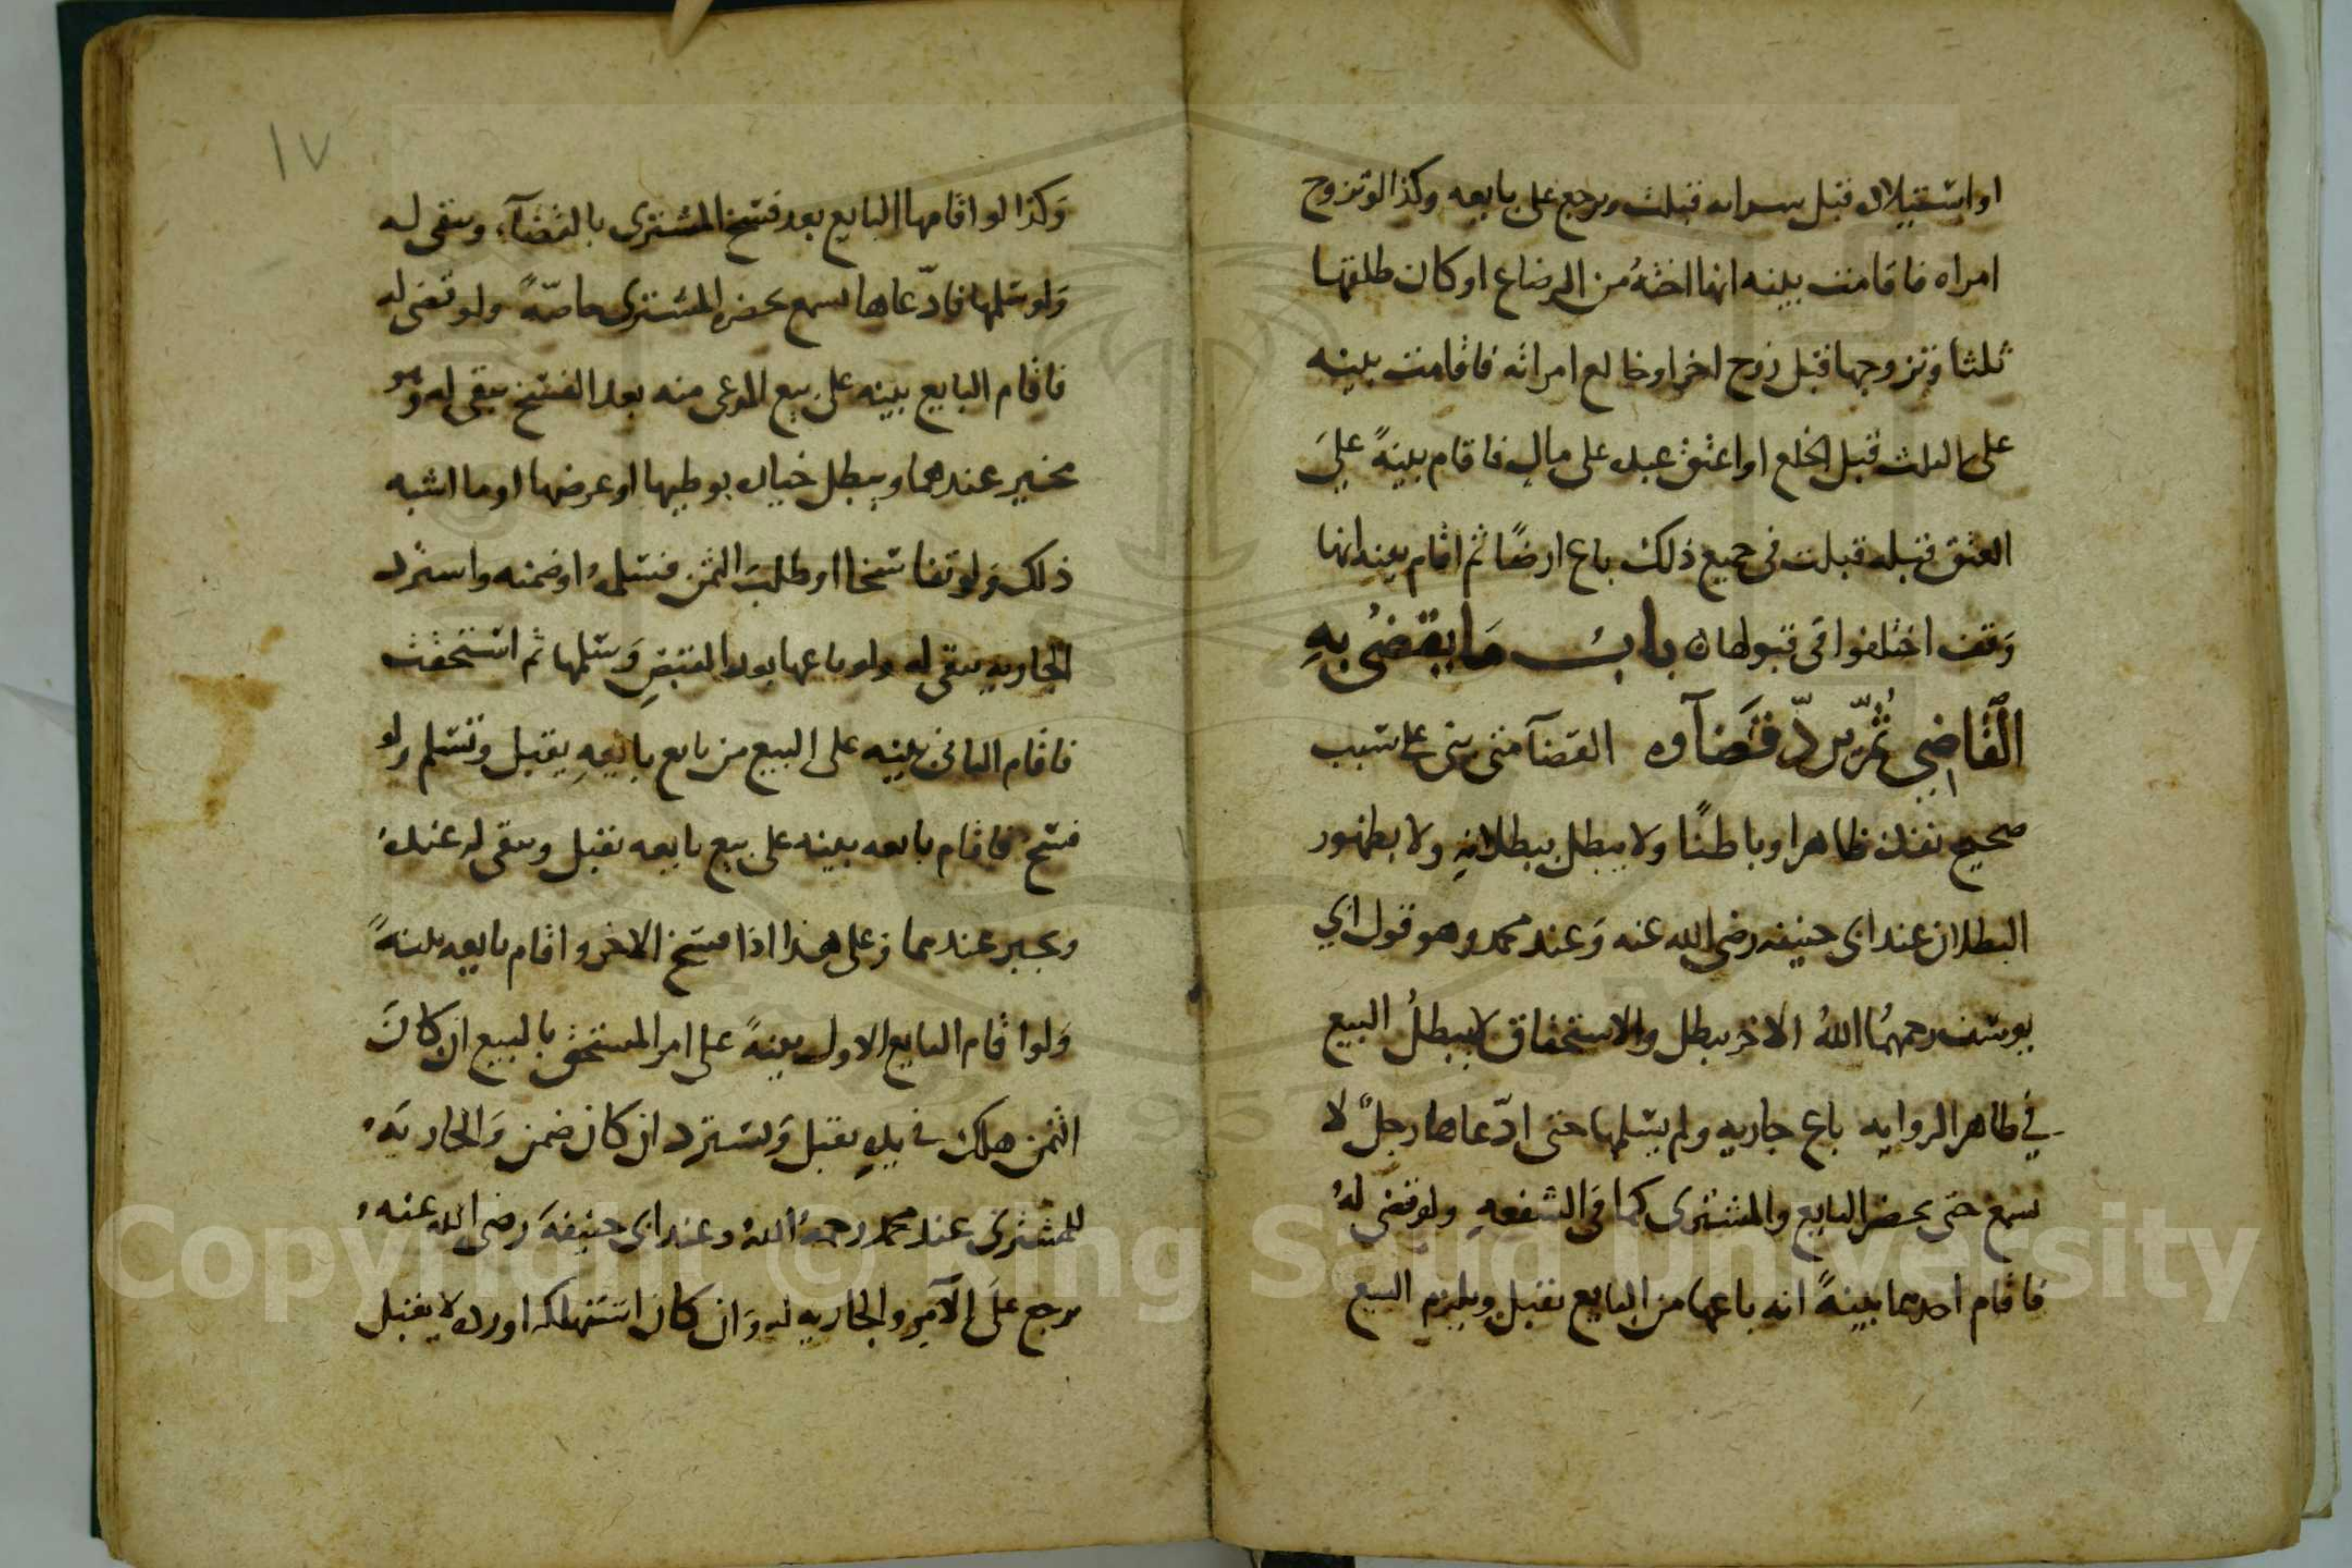 او استيلاد قبل سرايه قبلت ويرجع على بايعه وكذا لو تزوج
امراه فاقامت بينه انها اخته من الرضاع او كان طلقها
ثلثا وتزوجها قبل زوج اخر او خالع امراته فاقامت بينه
على الثلث قبل الخلع او اعتق عبده على مالٍ فاقام بينةً على
العتق قبله قبلت في جميع ذلك باع ارضًا ثم اقام بينه انها
وقف اختلفوا في قبولها باب ما يقضي به
القاضي ثم يردّ قضاوه القضآ متى بنى على سبب
صحيح نفذ ظاهرا وباطنًا ولا يبطل ببطلانه ولا بظهور
البطلان عند ابي حنيفه رضي الله عنه وعند محمد وهو قول ابي
يوسف رحمهما الله الاخر يبطل والاستحقاق لا يبطل البيع
في ظاهر الروايه باع جاريه ولم يسلمها حتى ادّعاها رجلٌ لا
سمع حتى يحضر البايع والمشتري كما في الشفعه ولو قضى له
فاقام احدهما بينةً انه باعها من البايع يقبل ويلزم البيع
١٧
وكذا لو اقامها البايع بعد فسخ المشتري بالقضآء وسقى له
ولو سلمها فادّعاها سمع بحضره المشتري خاصّةً ولو قضى له
فاقام البايع بينه على بيع المدعى منه بعد الفسخ يبقى له وهو
مخير عندهما ويبطل خياره بوطيها او عرضها او ما اشبه
ذلك ولو تفاسخا او طلب الثمن فسلمه او ضمنه واسترد
الجاريه يبقى له ولو باعها بعد القبض وسلمها ثم استحقت
فاقام الثاني بينه على البيع من بايع بايعه يقبل وتسلم ولو
فسخ فاقام بايعه بينه على بيع بايعه يقبل ويبقى له عنده
ويجبر عندهما وعلى هذا اذا فسخ الاخر واقام بايعه بينةً
ولو اقام البايع الاول بينةً على امر المستحق بالبيع ان كان
الثمن هلك في يده يقبل ويسترد ان كان ضمن والجاريه
للمشتري عند محمد رحمه الله وعند ابي حنيفه رضي الله عنه
يرجع على الآمر والجاريه له وان كان استهلكه او رده لا يقبل
Copyright © King Saud University
1957